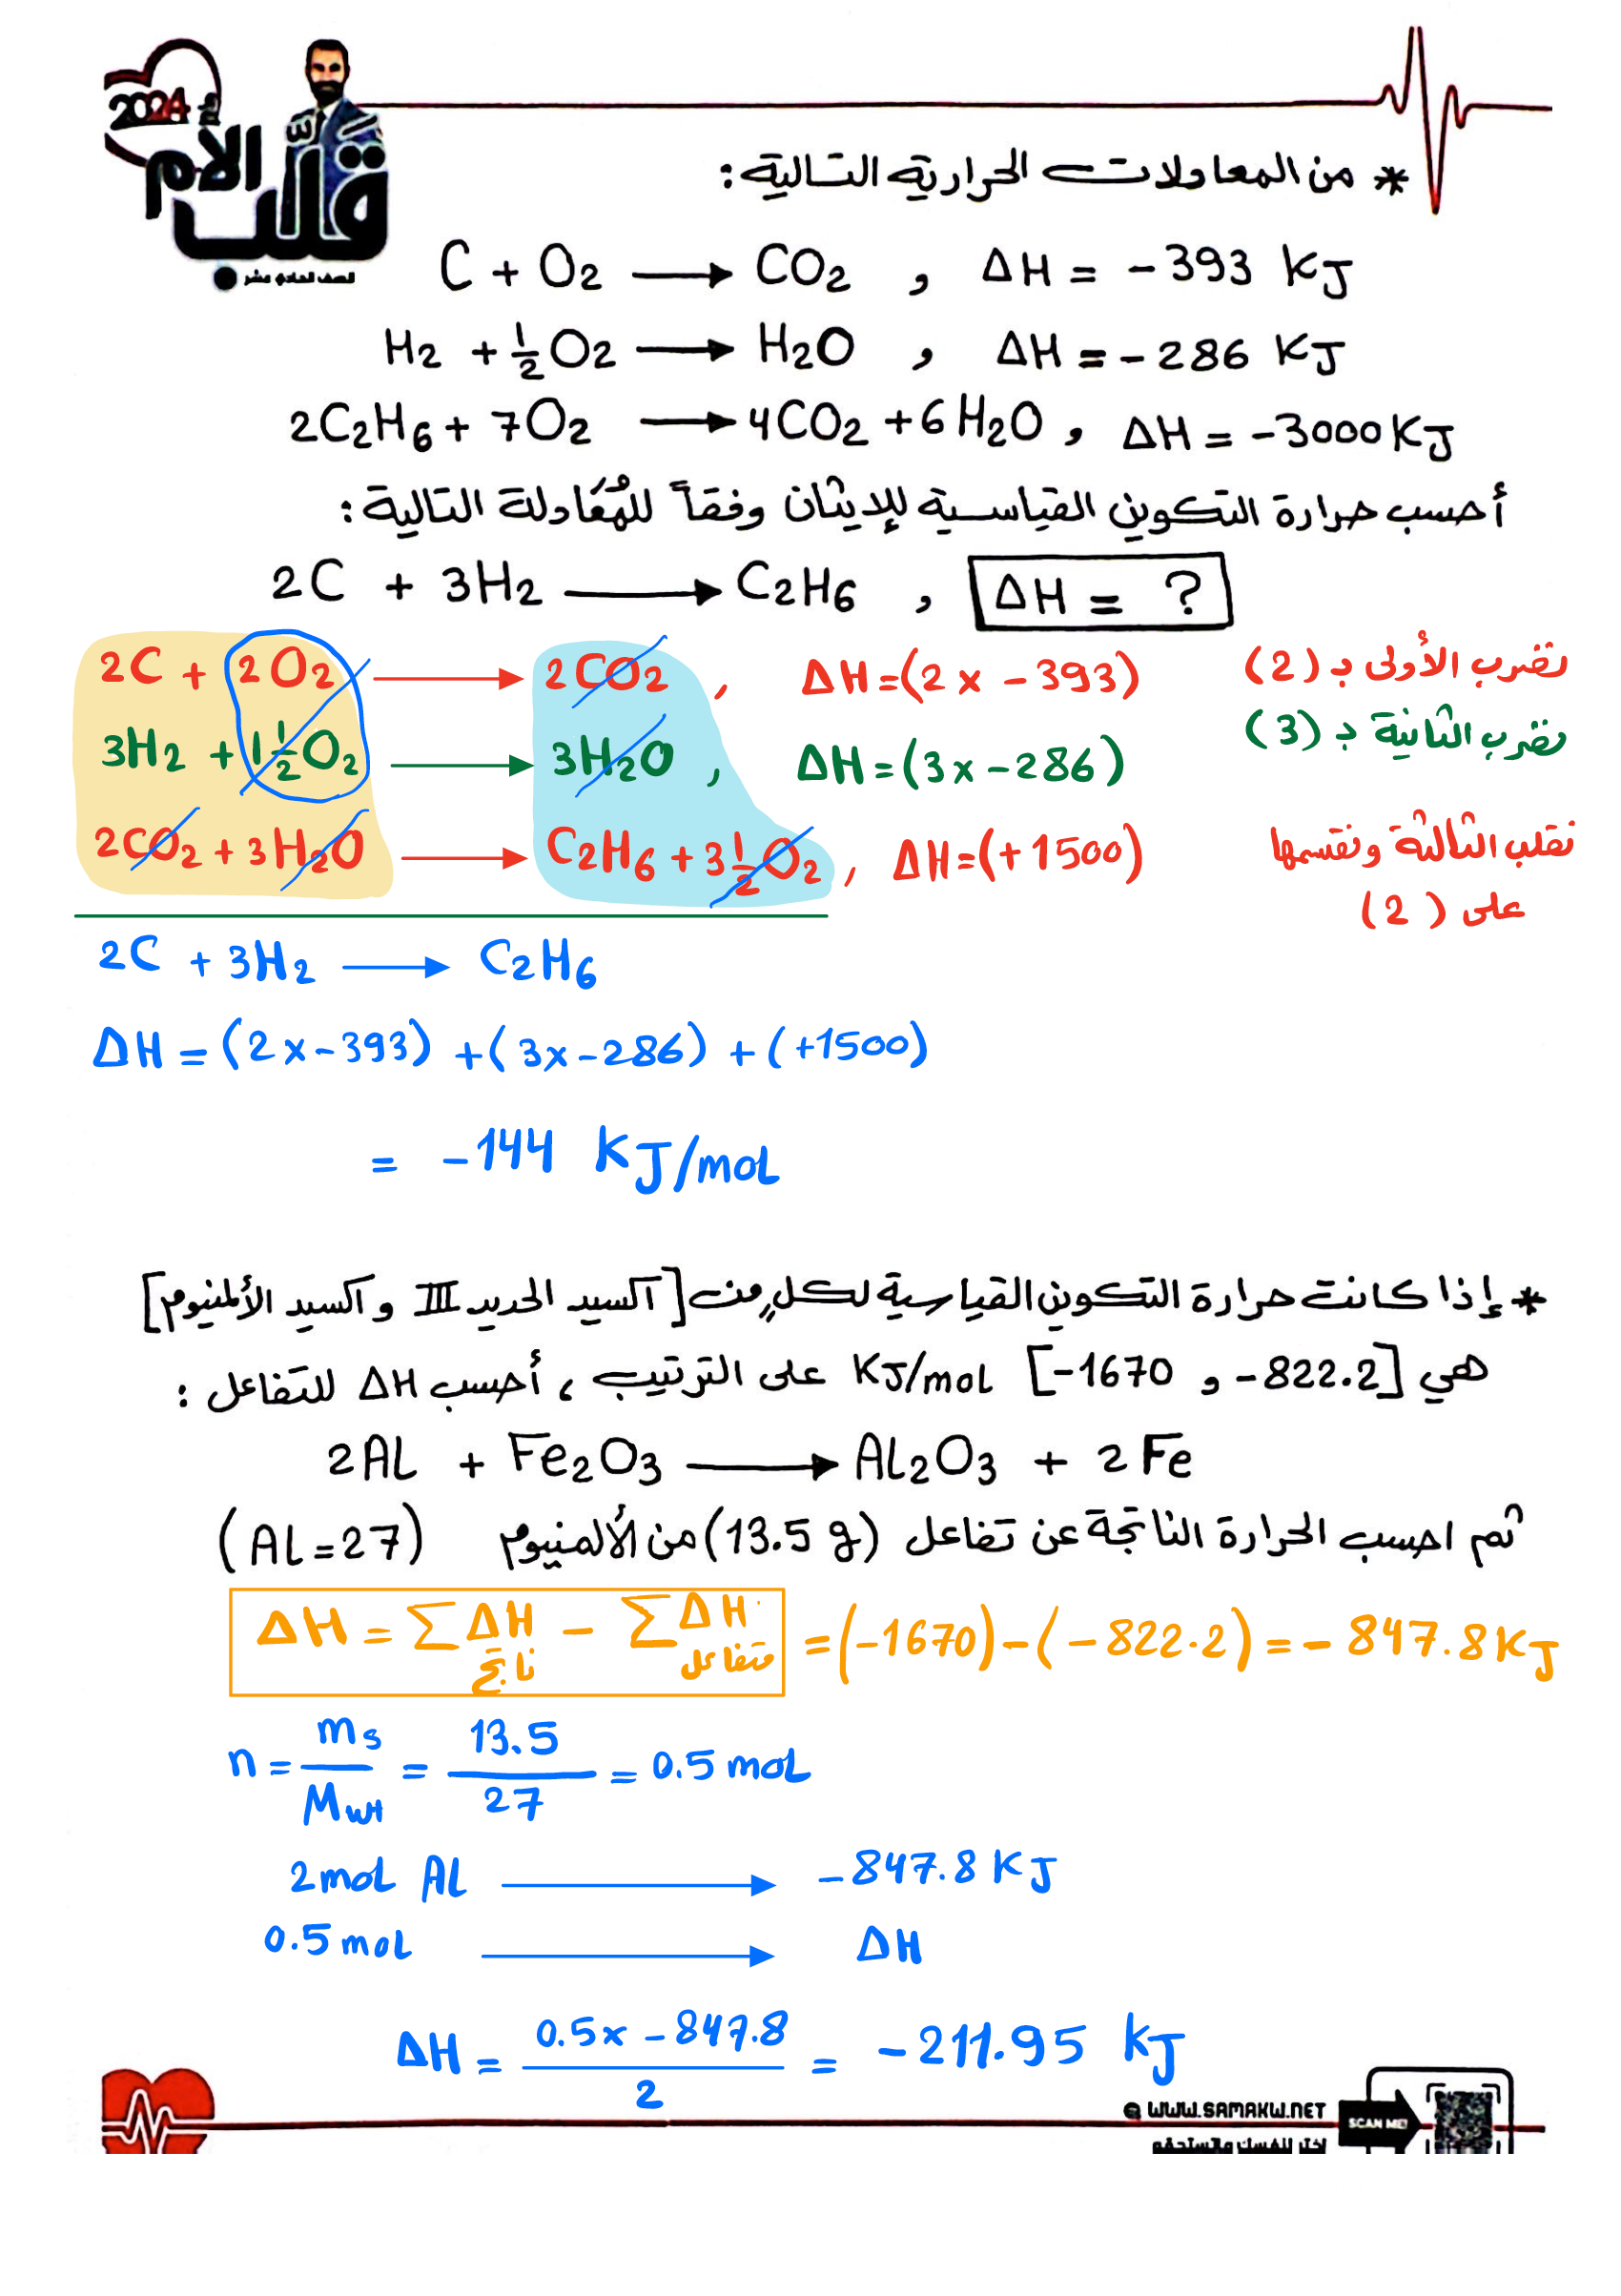 2024
قلب الأم
الصف الحادي عشر
* من المعاولات الحرارية التالية:
C + O₂ ⟶ CO₂ , ΔH = -393 KJ
H₂ + ½O₂ ⟶ H₂O , ΔH = -286 KJ
2C₂H₆ + 7O₂ ⟶ 4CO₂ + 6H₂O , ΔH = -3000 KJ
أحسب حرارة التكوين القياسية للإيثان وفقاً للمُعَادلة التالية:
2C + 3H₂ ⟶ C₂H₆ , ΔH = ?
2C + 2O₂ ⟶ 2CO₂ , ΔH=(2 x -393) نضرب الأولى بـ (2)
3H₂ + 1½O₂ ⟶ 3H₂O , ΔH=(3x-286) نضرب الثانية بـ (3)
2CO₂ + 3H₂O ⟶ C₂H₆ + 3½O₂ , ΔH=(+1500) نقلب الثالثة ونقسمها
على (2)
2C + 3H₂ ⟶ C₂H₆
ΔH = (2x-393) + (3x-286) + (+1500)
= -144 KJ/mol
* إذا كانت حرارة التكوين القياسية لكلٍ من [أكسيد الحديد III و أكسيد الألمنيوم]
هي [-822.2 و -1670] KJ/mol على الترتيب ، أحسب ΔH للتفاعل :
2Al + Fe₂O₃ ⟶ Al₂O₃ + 2Fe
ثم احسب الحرارة الناتجة عن تفاعل (13.5 g) من الألمنيوم (Al=27)
ΔH = ∑ΔH ناتج - ∑ΔH متفاعل = (-1670)-(-822.2) = -847.8 KJ
n = ms/Mwt = 13.5/27 = 0.5 mol
2mol Al ⟶ -847.8 KJ
0.5 mol ⟶ ΔH
ΔH = 0.5x -847.8 / 2 = -211.95 KJ
WWW.SAMAKW.NET
SCAN ME!
اختر لنفسك ماتستحقه